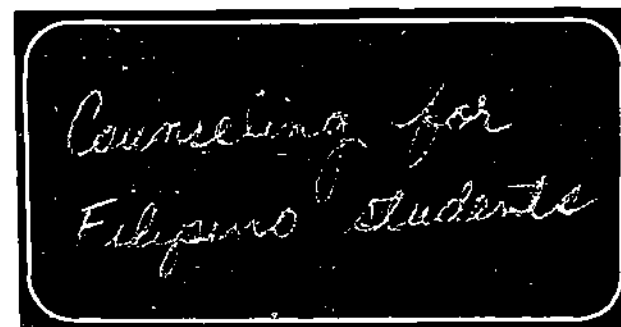 Counseling for
Filipino students